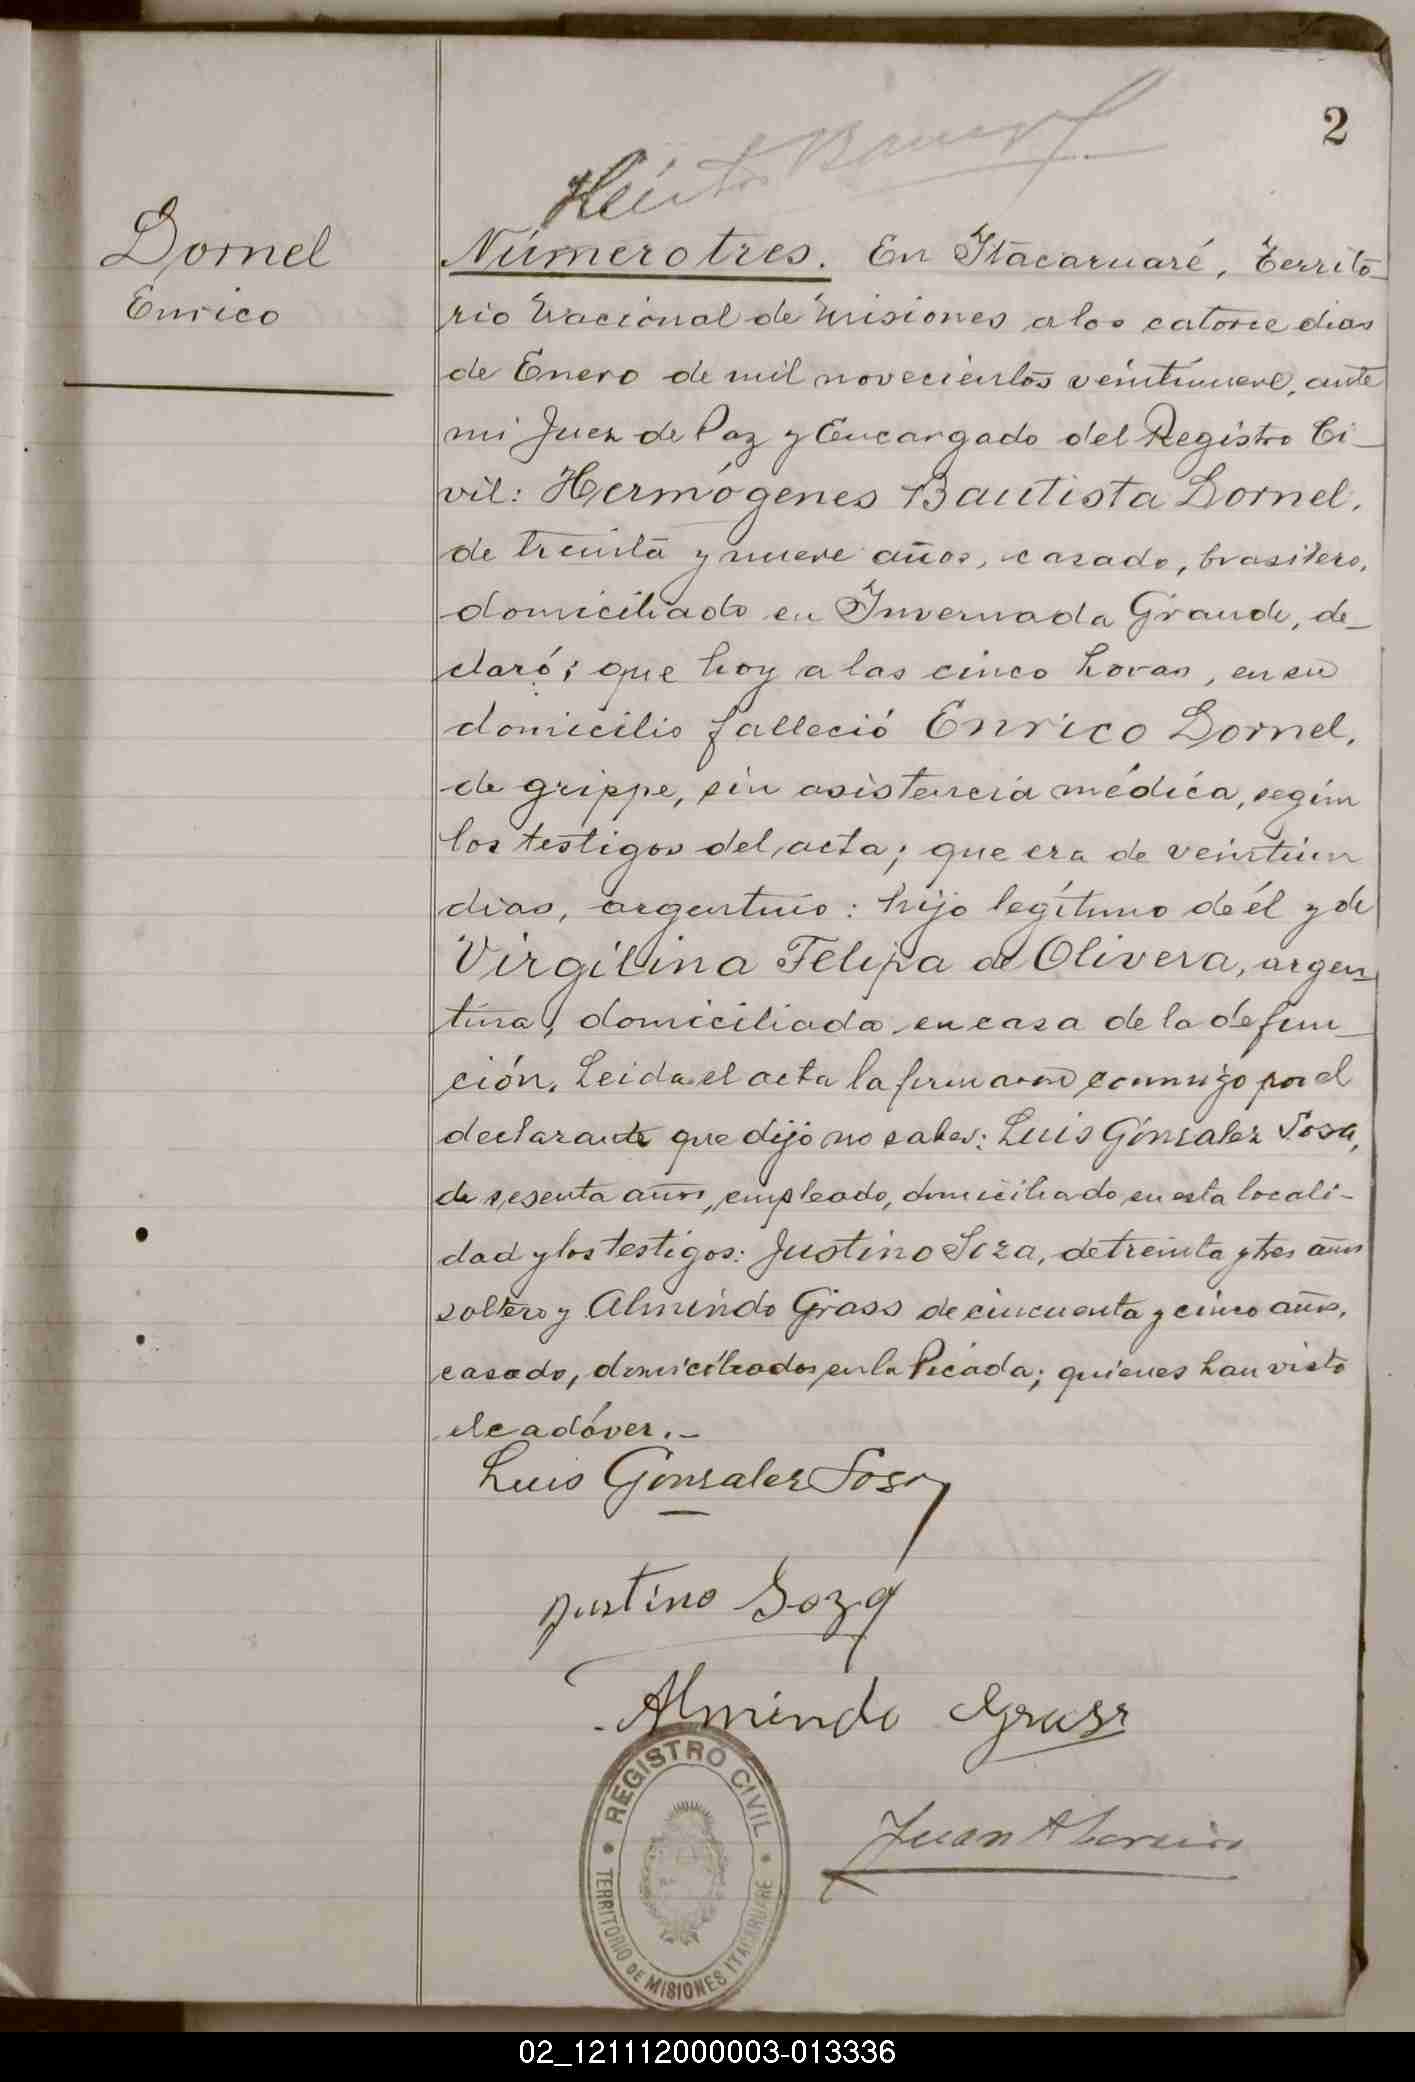 2
Dornel
Enrico
Número tres. En Itacaruaré, Territo-
rio Nacional de Misiones a los catorce dias
de Enero de mil novecientos veintinueve, ante
mi Juez de Paz y Encargado del Registro Ci-
vil: Hermógenes Bautista Dornel,
de treinta y nueve años, casado, brasilero,
domiciliado en Invernada Grande, de-
claró; que hoy a las cinco horas, en su
domicilio falleció Enrico Dornel,
de grippe, sin asistencia médica, según
los testigos del acta; que era de veintiun
dias, argentino: hijo legítimo de él y de
Virgilina Felipa de Olivera, argen-
tina, domiciliada en casa de la defun-
ción. Leida el acta la firmaron conmigo por el
declarante que dijo no saber: Luis Gonzalez Sosa,
de sesenta años, empleado, domiciliado en esta locali-
dad y los testigos: Justino Soza, de treinta y tres años
soltero y Almindo Grass de cincuenta y cinco años,
casado, domiciliados en la Picada; quienes han visto
el cadáver.-
Luis Gonzalez Sosa
Justino Soza
Almindo Grass
Juan A
REGISTRO CIVIL
TERRITORIO DE MISIONES ITACARUARE
02_121112000003-013336